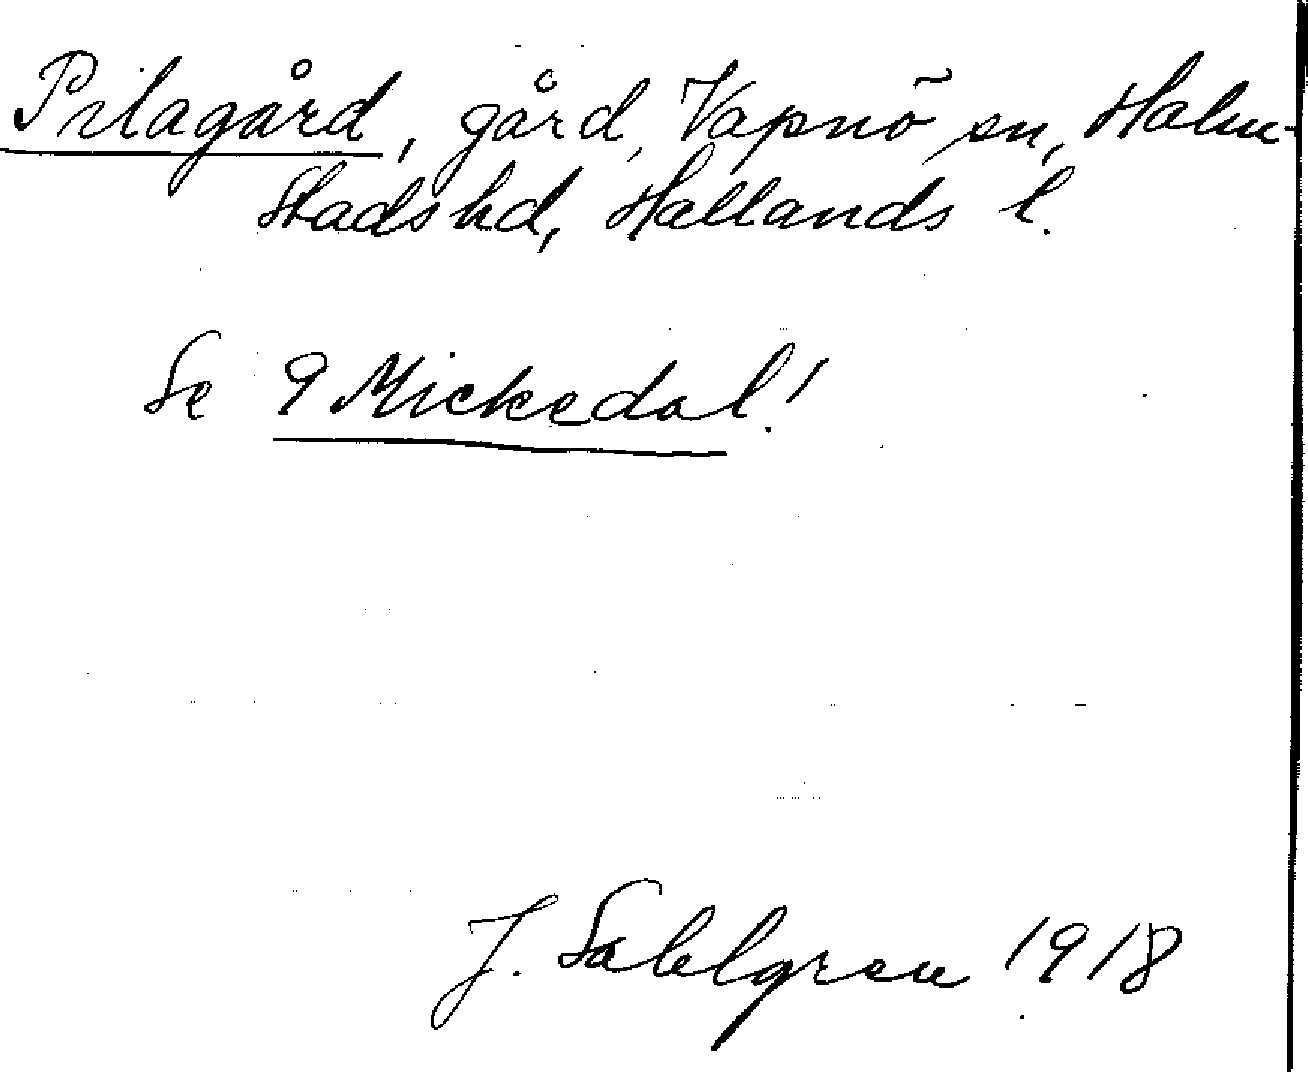 Pilagård, gård, Vapnö sn, Halm-
stads hd, Hallands l.
Se 9 Mickedal!
J. Sahlgren 1918